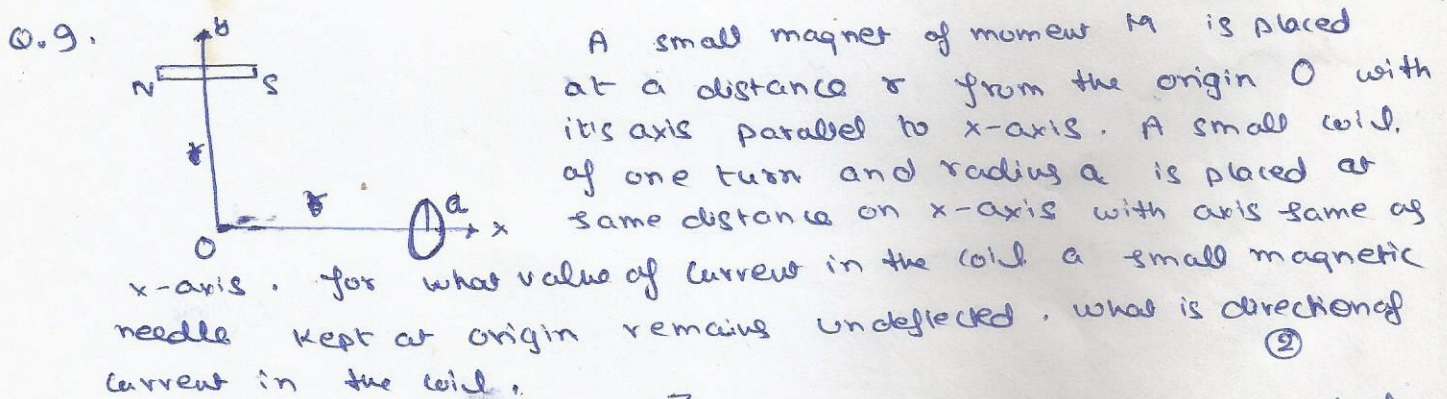 Q.9. y A small magnet of moment M is placed
N S at a distance r from the origin O with
it's axis parallel to x-axis. A small coil
r of one turn and radius a is placed at
r a x same distance on x-axis with axis same as
O
x-axis. for what value of current in the coil a small magnetic
needle kept at origin remains undeflected. what is direction of
current in the coil. 2